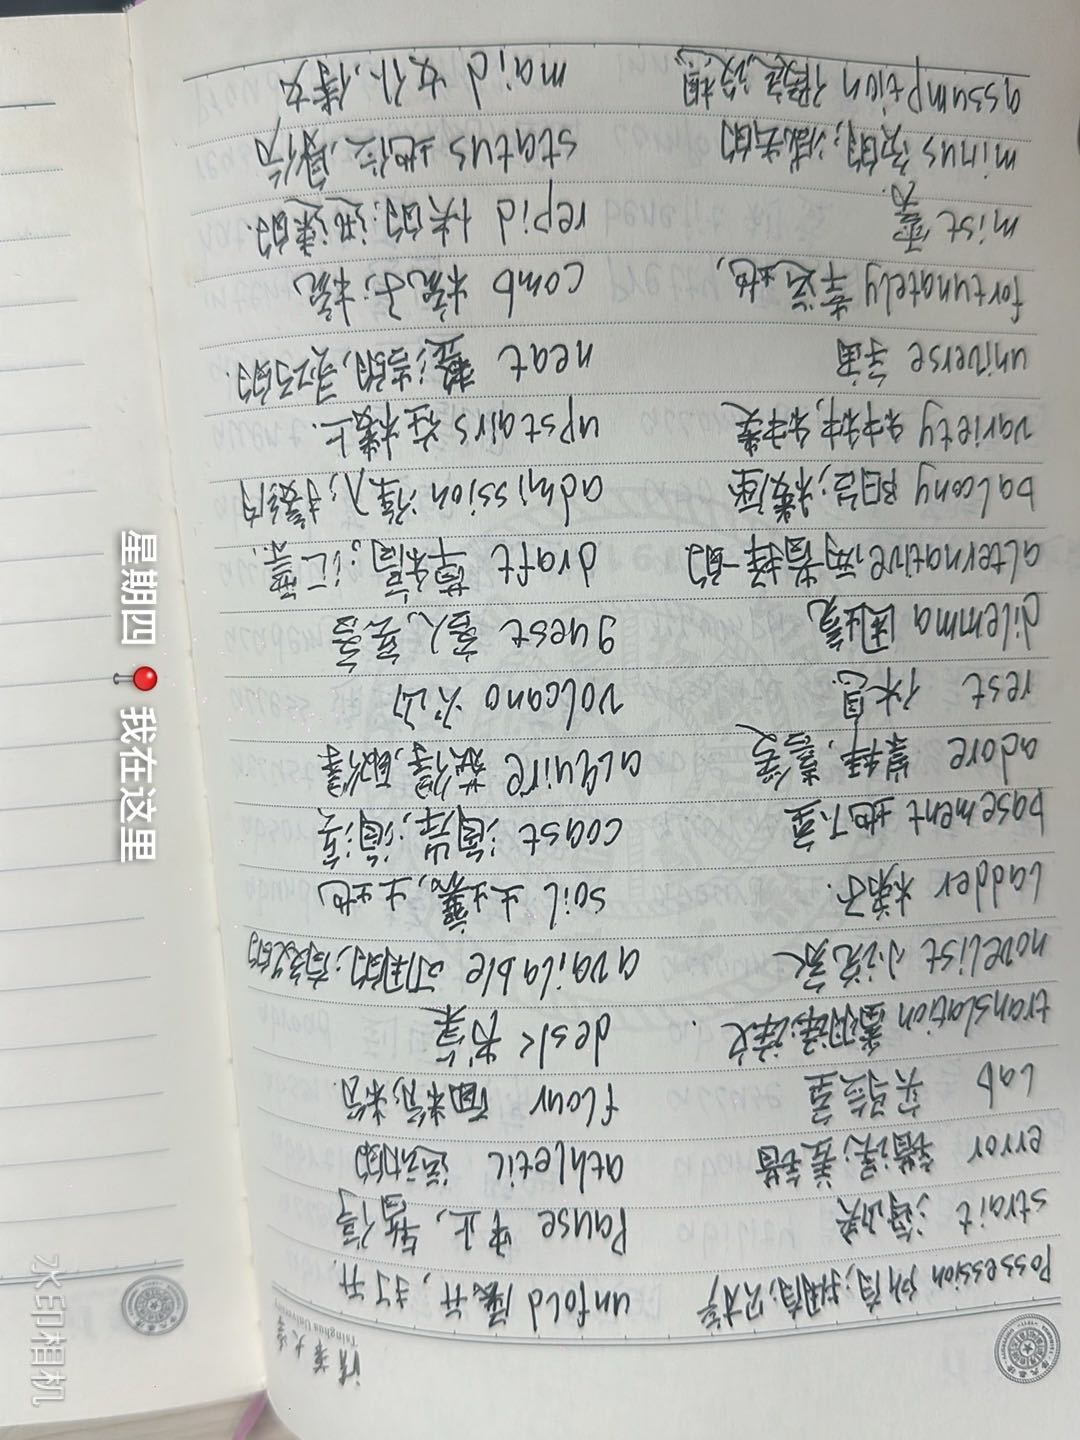 清华大学
Tsinghua University
Possession 所有;拥有;财产
unfold 展开,打开.
strait 海峡
Pause 中止,暂停
error 错误;差错
athletic 运动的
Lab 实验室
flour 面粉;粉.
translation 翻译;译文.
desk 书桌
novelist 小说家
available 可利用的;有效的
Ladder 梯子.
soil 土壤,土地
basement 地下室
coast 海岸;海滨
adore 崇拜,喜爱
acquire 获得,取得
rest 休息.
volcano 火山
dilemma 困境
guest 客人,宾客
alternative 两者择一的
draft 草稿;汇票.
balcony 阳台;楼座
admission 准入;接纳
variety 种种,种类
upstairs 在楼上.
universe 宇宙
neat 整洁的,灵巧的.
fortunately 幸运地,
comb 梳子;梳
mist 雾.
repid 快的;迅速的.
minus 负的;减去的
status 地位,身份
assumption 假定,设想
maid 女仆,侍女
星期四📍我在这里
水印相机